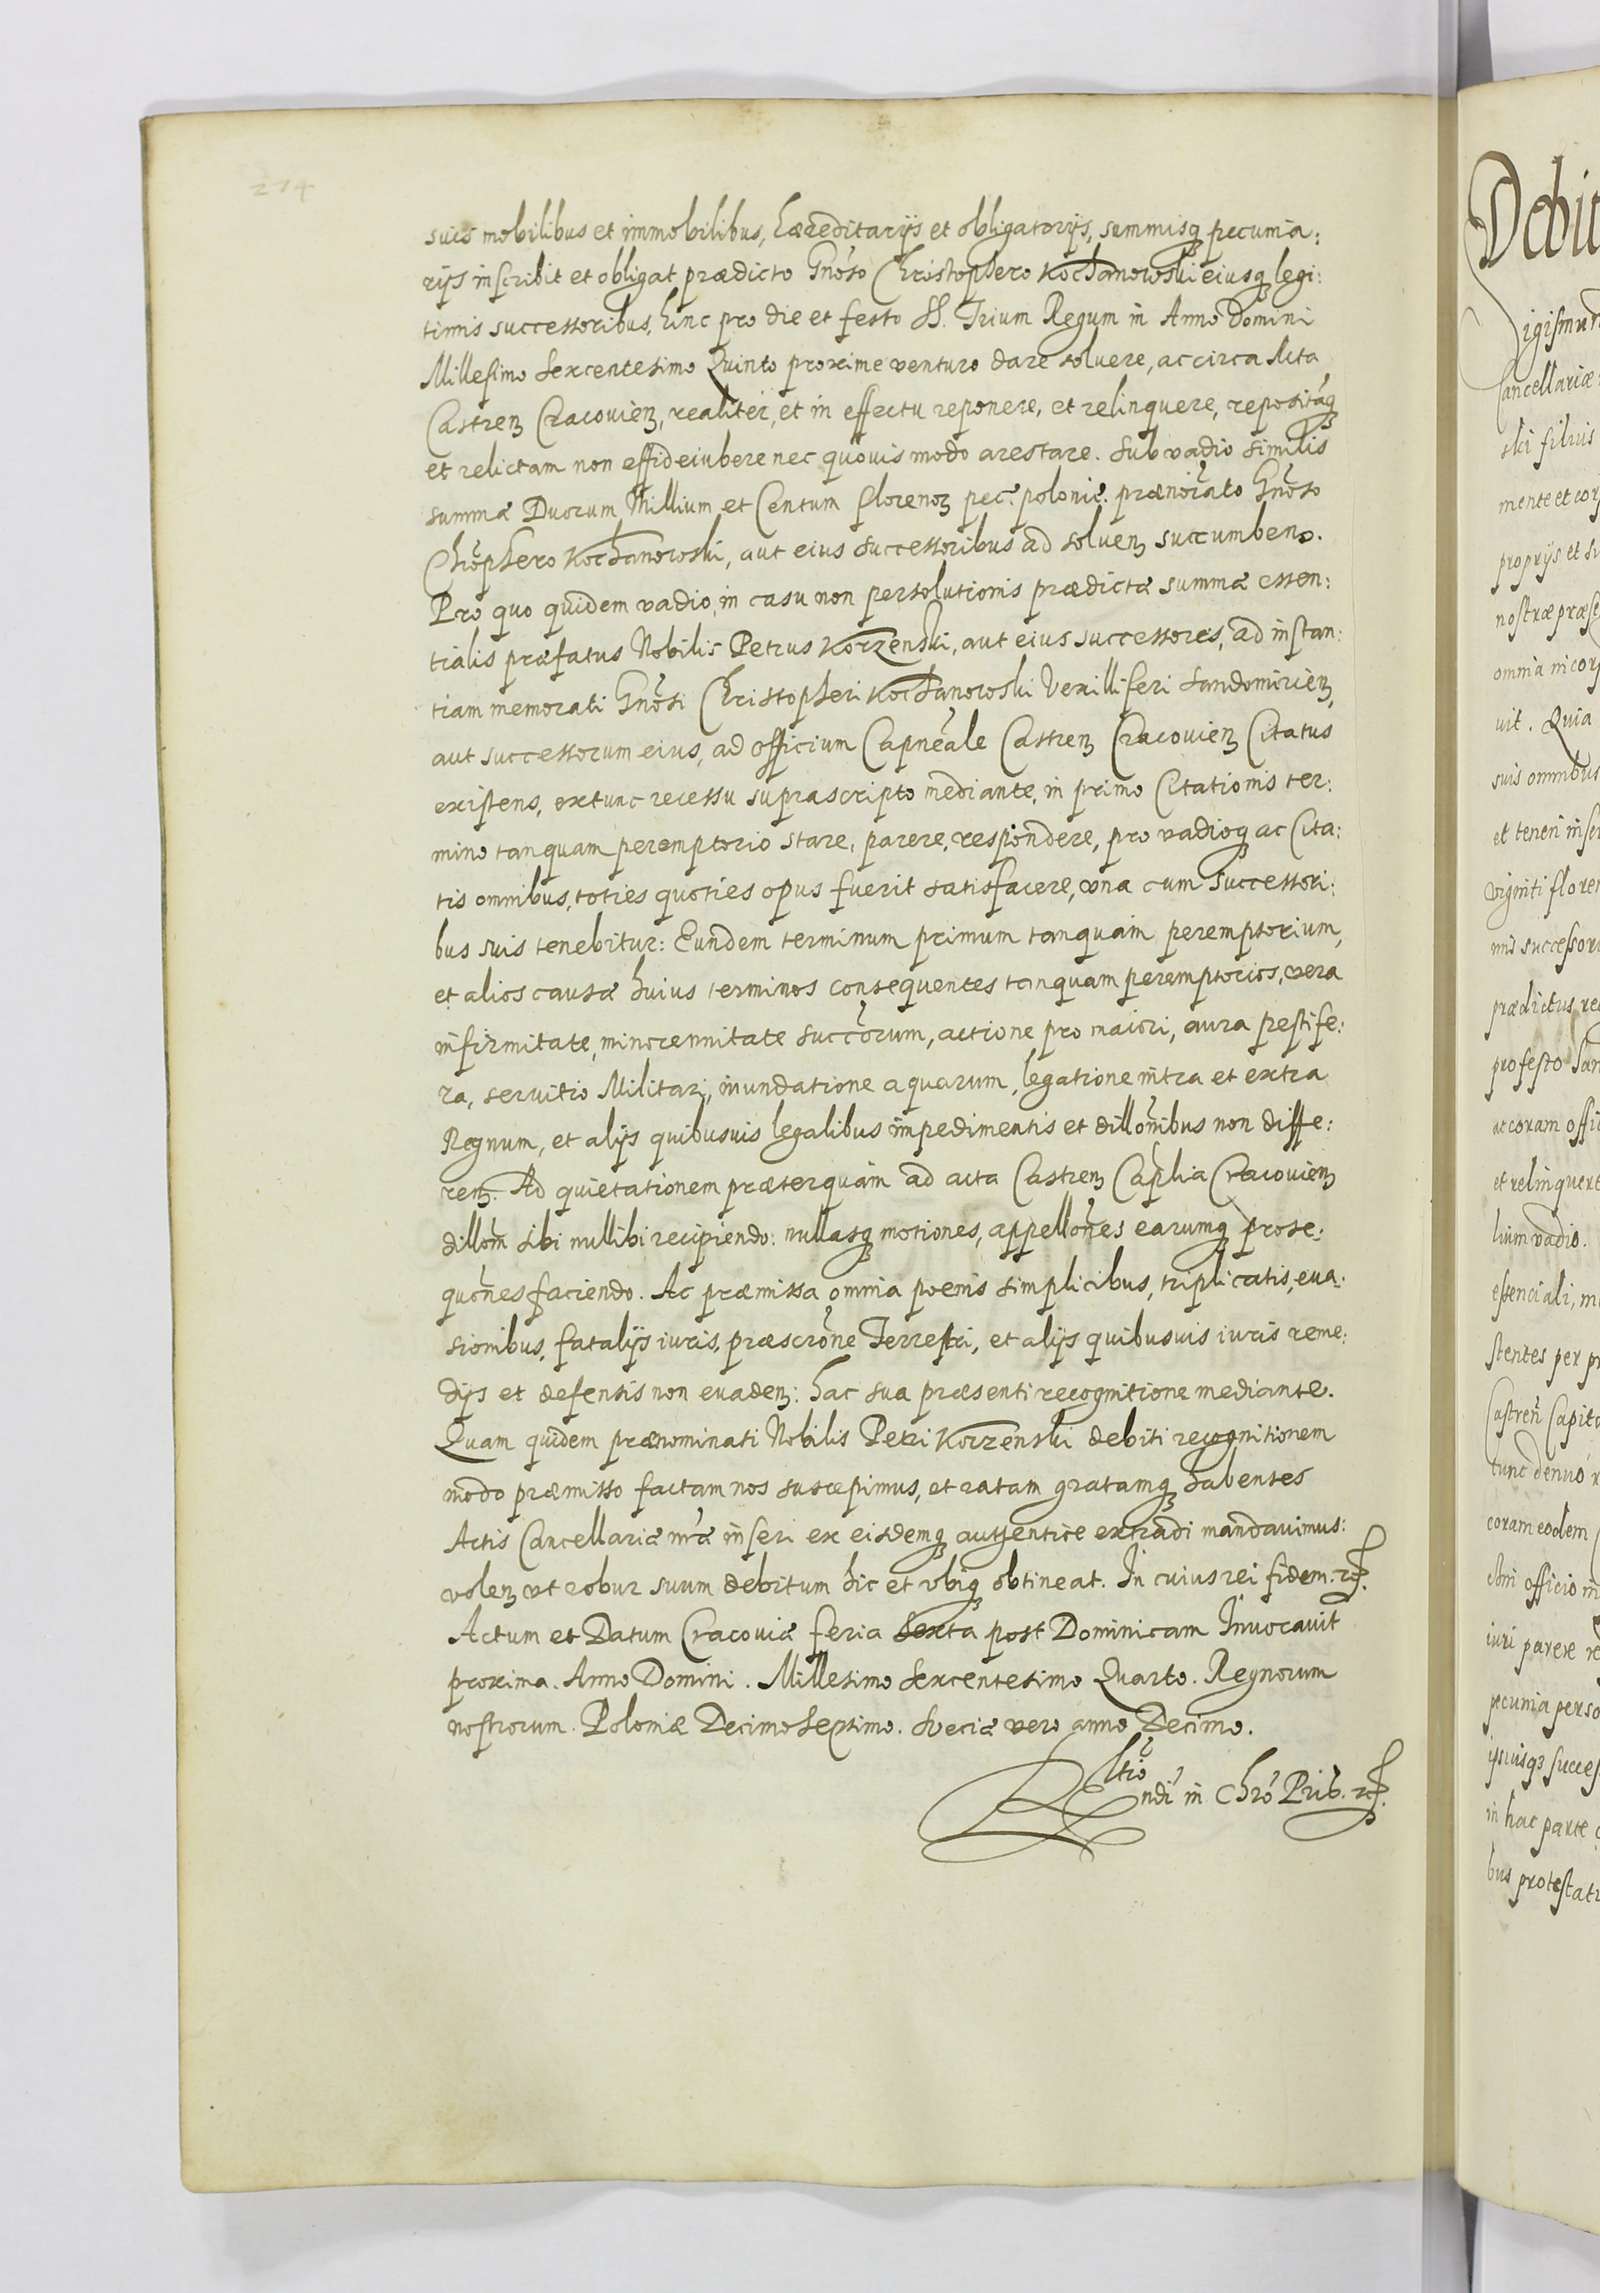 274
suis mobilibus et immobilibus, hæreditarijs et obligatorijs, summisq3 pecunia:
rijs inscribit et obligat prædicto Gnōso Christophero Kochanowski eiusq3 legi:
timis successoribus, hinc pro die et festo SS. Trium Regum in Anno Domini
Millesimo Sexcentesimo Quinto proxime venturo dare soluere, ac circa Acta
Castren3 Cracouien3, realiter, et in effectu reponere, et relinquere, repositāq3
et relictam non effideiubere nec quouis modo arestare. Sub vadio similis
summæ Duorum Millium et Centum floreno3 pec. polonic. prænoīato Gnōso
Chrōphero Kochanowski, aut eius successoribus ad soluen3 succumbeno.
Pro quo quidem vadio, in casu non persolutionis prædictæ summæ essen:
tialis præfatus Nobilis Petrus Korzenski, aut eius successores, ad instan:
tiam memorati Gnōsi Christopheri Kochanowski Vexilliferi Sandomirien3,
aut successorum eius, ad officium Capneāle Castren3 Cracouien3 Citatus
existens, extunc recessu suprascripto mediante, in primo Citationis ter:
mino tanquam peremptorio stare, parere, respondere, pro vadioq3 ac Cita:
tis omnibus, toties quoties opus fuerit satisfacere, vna cum successori:
bus suis tenebitur: Eundem terminum primum tanquam peremptorium,
et alios causæ huius terminos consequentes tanquam peremptorios, vera
infirmitate, minorennitate succorum, actione pro maiori, aura pestife:
ra, seruitio Militari, inundatione aquarum, legatione intra et extra
Regnum, et alijs quibusuis legalibus impedimentis et dillōnibus non diffe:
ren3. Ad quietationem præterquam ad acta Castren3 Caplia Cracouien3
dillōm sibi nullibi recipiendo: nullasq3 motiones, appellōnes earumq3 prose:
quōnes faciendo. Ac præmissa omnia pœnis simplicibus, triplicatis, eua:
sionibus, fatalijs iuris, præscrōne Terrestri, et alijs quibusuis iuris reme:
dijs et defensis non euaden3: hac sua præsenti recognitione mediante.
Quam quidem prænominati Nobilis Petri Korzenski debiti recognitionem
modo præmisso factam nos suscepimus, et ratam gratamq3 habentes
Actis Cancellariæ nræ inseri ex eisdemq3 autentice extradi mandauimus:
volen3 vt robur suum debitum hic et vbiq3 obtineat. In cuius rei fidem. rf.
Actum et Datum Cracouiæ feria Sexta post Dominicam Inuocauit
proxima. Anno Domini. Millesimo Sexcentesimo Quarto. Regnorum
nostrorum Poloniæ Decimo Septimo. Sueciæ vero anno Decimo.
Rltio
ndi in Chrō Prib. rf.
Debit
Sigismun
Cancellariæ
ski filius
mente et corp
proprijs et su
nostræ præse
omnia in corp
uit. Quia
suis omnibus
et teneri inser
viginti floren
mis successori
prædictus rec
pro festo San
ac coram offic
et relinquere
lium vadio.
essenciali, m
stentes per pr
Castren Capita
tunc denuo r
coram eodem
sibini officio in
iuri parere re
pecunia perso
ipsiusq3 succes
in hac parte
bus protestati